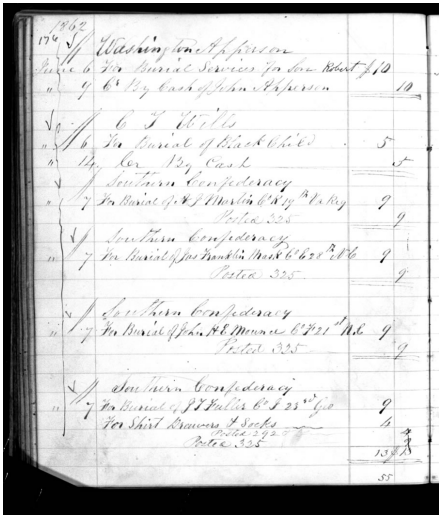 1862
176
Washington Apperson
June 6 For Burial Services for Son Robert $10
" 7 Cr By Cash of John Apperson 10
C T Wills
" 6 For Burial of Black Child 5
" 14 Cr By Cash 5
Southern Confederacy
" 7 For Burial of A J Martin Co K 19th Va Reg 9
Posted 325 9
Southern Confederacy
" 7 For Burial of Jas Franklin Co E 28th N C 9
Posted 325 9
Southern Confederacy
" 7 For Burial of John H E Co F 21st N.C 9
Posted 325 9
Southern Confederacy
" 7 For Burial of J T Fuller Co I 23rd Geo 9
For Shirt Drawers & Socks 4
Posted 292
Posted 325
13
55